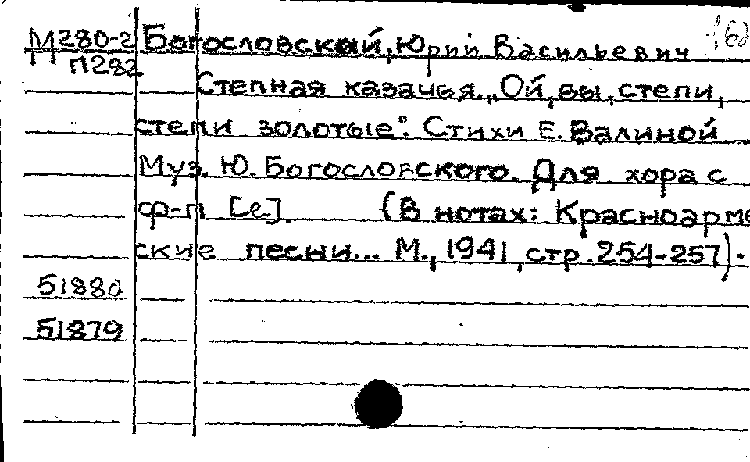 М280-2 Богословский, Юрий Васильевич
П282
Степная казачья „Ой, вы, степи,
степи золотые". Стихи Е. Валиной
Муз. Ю. Богословского. Для хора с
ф-п [e]. (В нотах: Красноарме
ские песни... М., 1941, стр. 254-257).
51880
51879